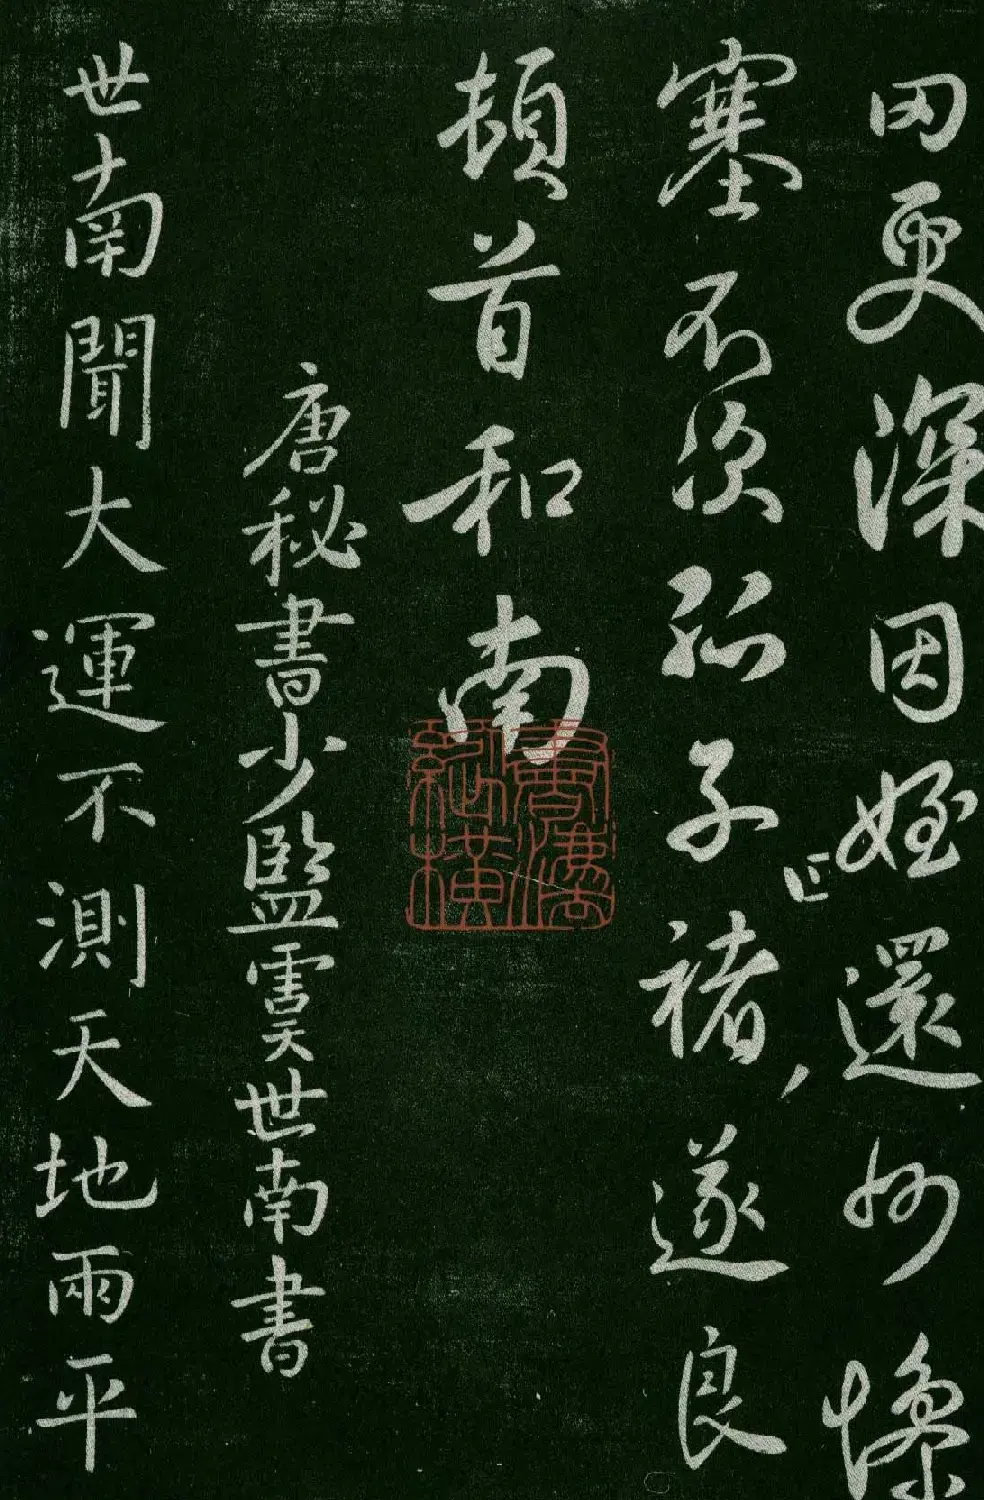 更深因姪還妙
塞不次孤子褚遂良
頓首和南
唐秘書少監虞世南書
世南聞大運不測天地兩平
書法
縱橫